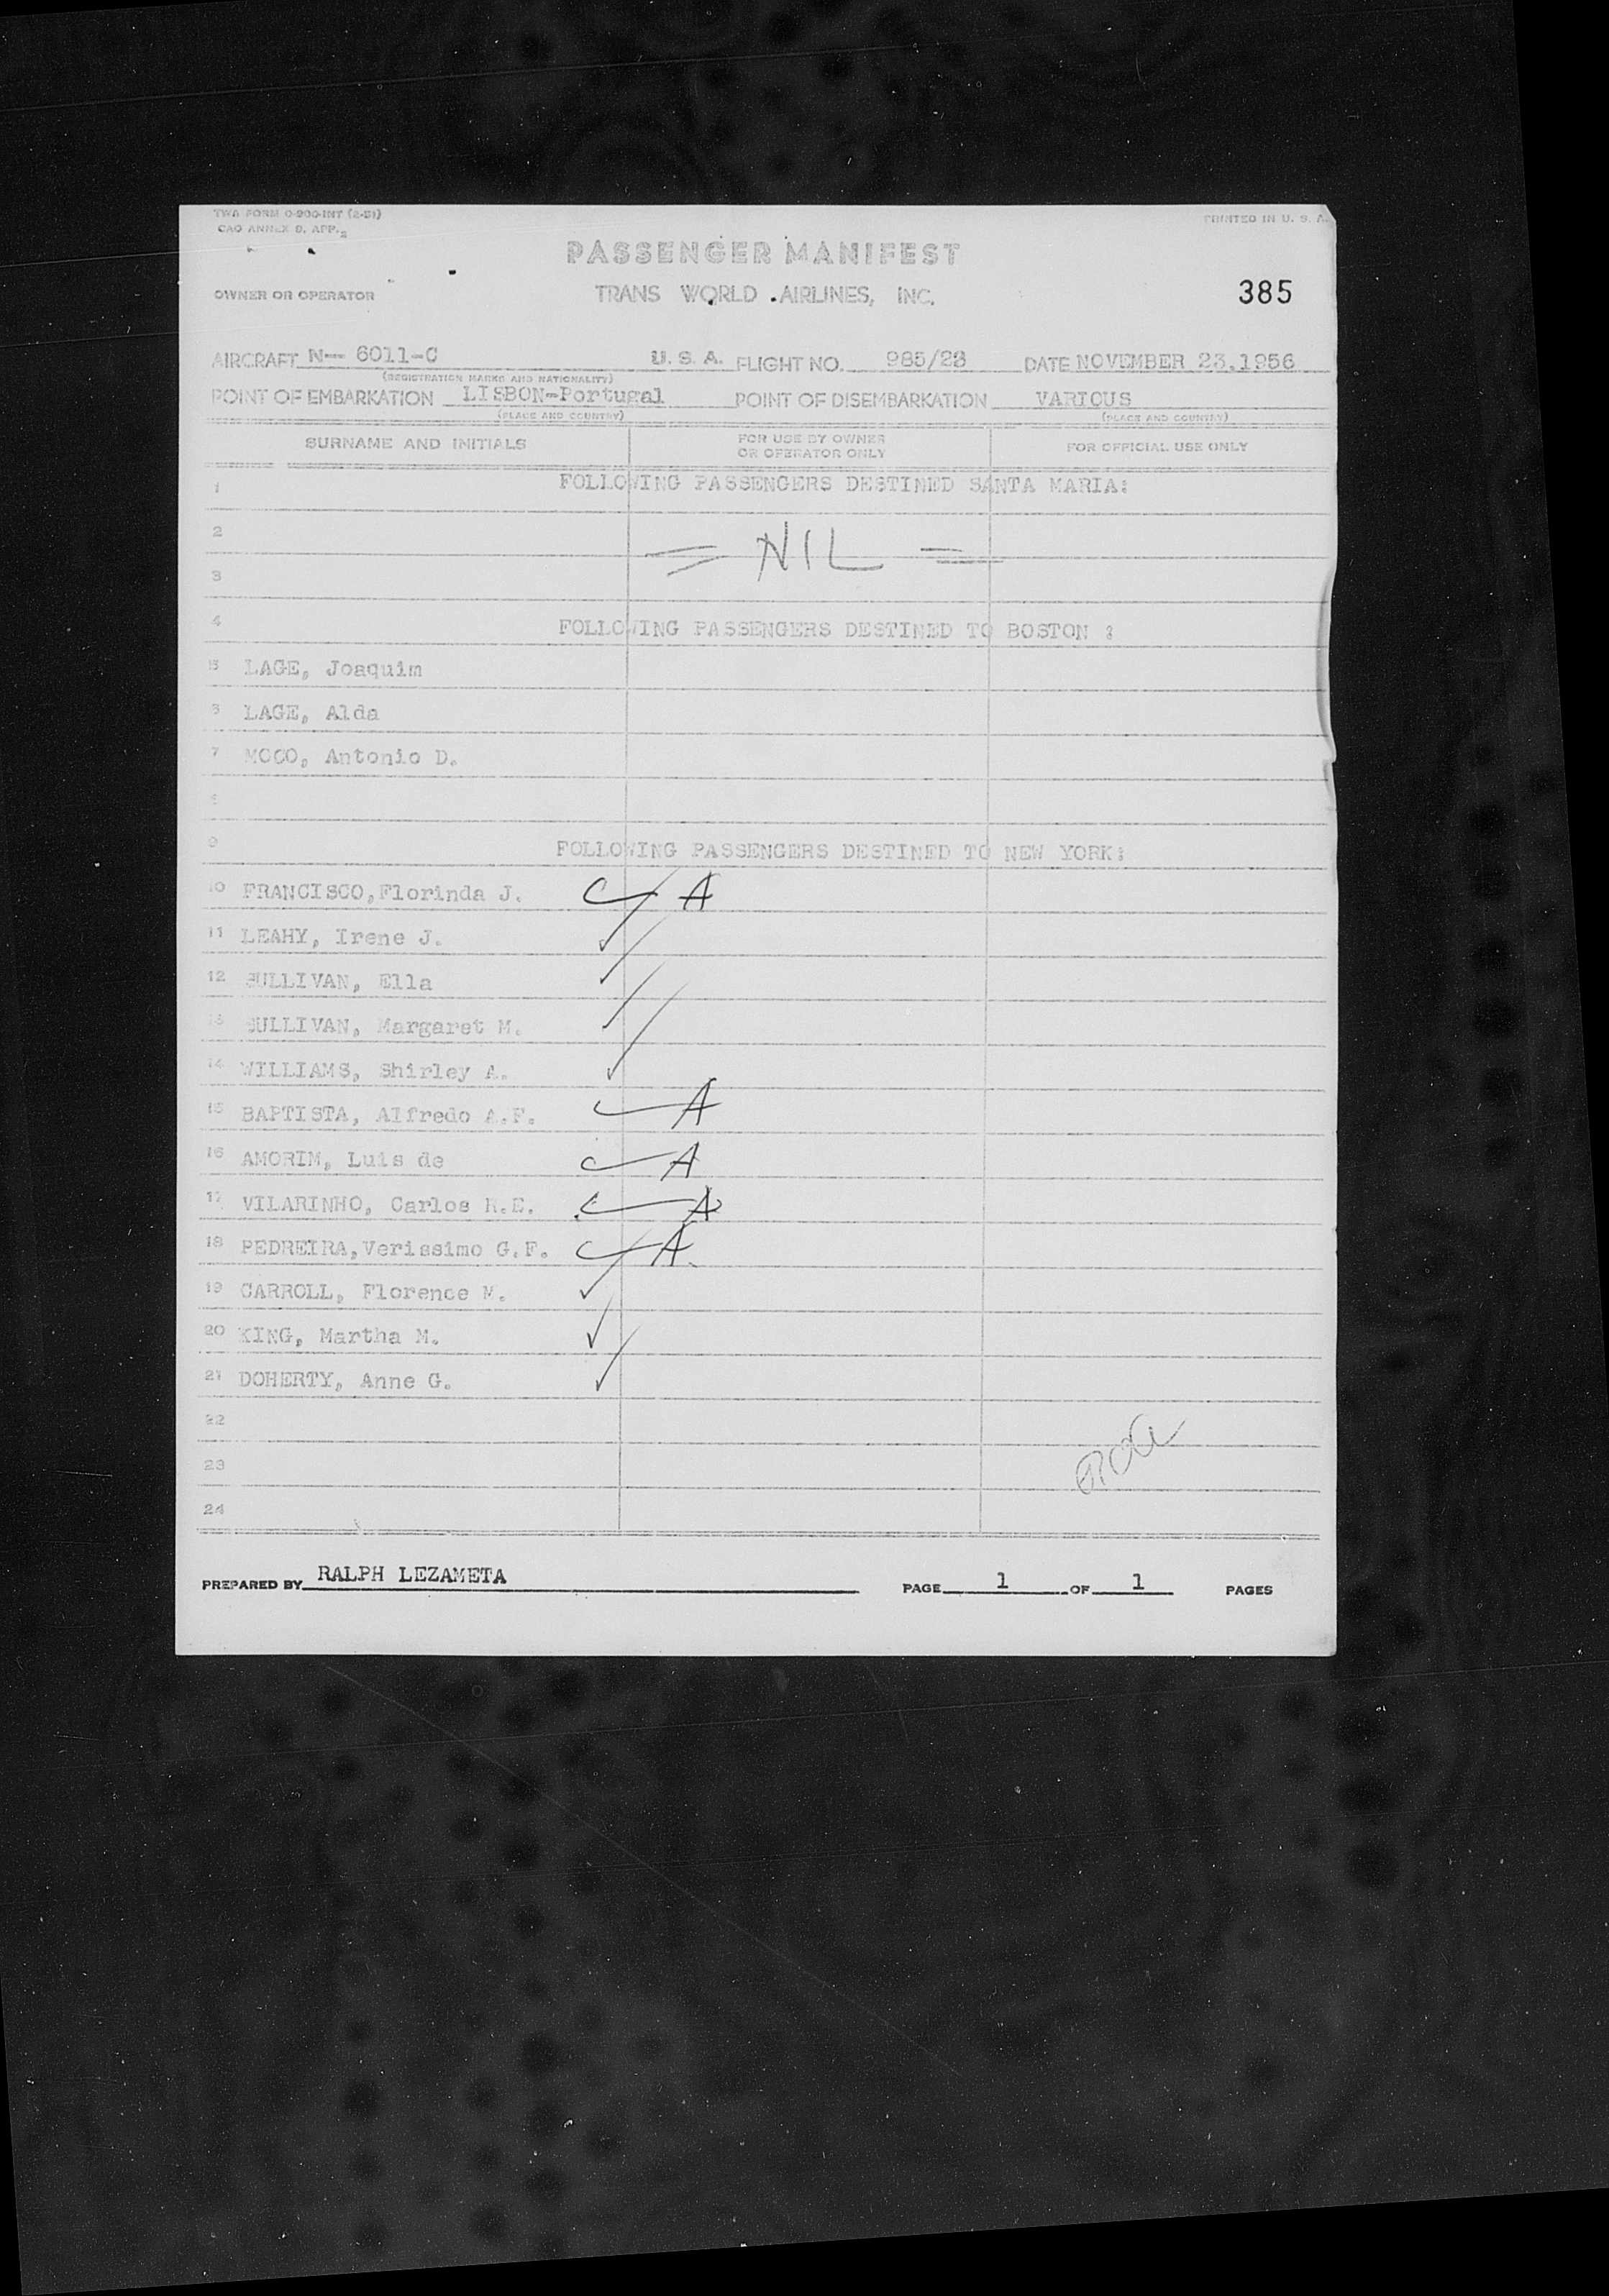 TWA FORM O-900-INT (2-51)
PRINTED IN U. S. A.
CAO ANNEX 9, APP. 2
PASSENGER MANIFEST
OWNER OR OPERATOR TRANS WORLD AIRLINES, INC. 385
AIRCRAFT N-- 6011-C U. S. A. FLIGHT NO. 985/23 DATE NOVEMBER 23,1956
(REGISTRATION MARKS AND NATIONALITY)
POINT OF EMBARKATION LISBON-Portugal POINT OF DISEMBARKATION VARIOUS
(PLACE AND COUNTRY) (PLACE AND COUNTRY)
SURNAME AND INITIALS FOR USE BY OWNER OR OPERATOR ONLY FOR OFFICIAL USE ONLY
1 FOLLOWING PASSENGERS DESTINED SANTA MARIA:
2 = NIL =
3
4 FOLLOWING PASSENGERS DESTINED TO BOSTON :
5 LAGE, Joaquim
6 LAGE, Alda
7 MOCO, Antonio D.
8
9 FOLLOWING PASSENGERS DESTINED TO NEW YORK:
10 FRANCISCO,Florinda J. A
11 LEAHY, Irene J. ✓
12 SULLIVAN, Ella ✓
13 SULLIVAN, Margaret M. ✓
14 WILLIAMS, Shirley A. ✓
15 BAPTISTA, Alfredo A.F. A
16 AMORIM, Luis de A
17 VILARINHO, Carlos R.E. A
18 PEDREIRA,Verissimo G.F. A
19 CARROLL, Florence M. ✓
20 KING, Martha M. ✓
21 DOHERTY, Anne G. ✓
22
23
24
PREPARED BY RALPH LEZAMETA PAGE 1 OF 1 PAGES